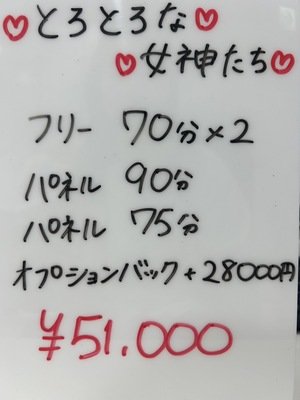 ♡とろとろな♡
♡女神たち♡
フリー 70分×2
パネル 90分
パネル 75分
オプションバック+28000円
¥51.000